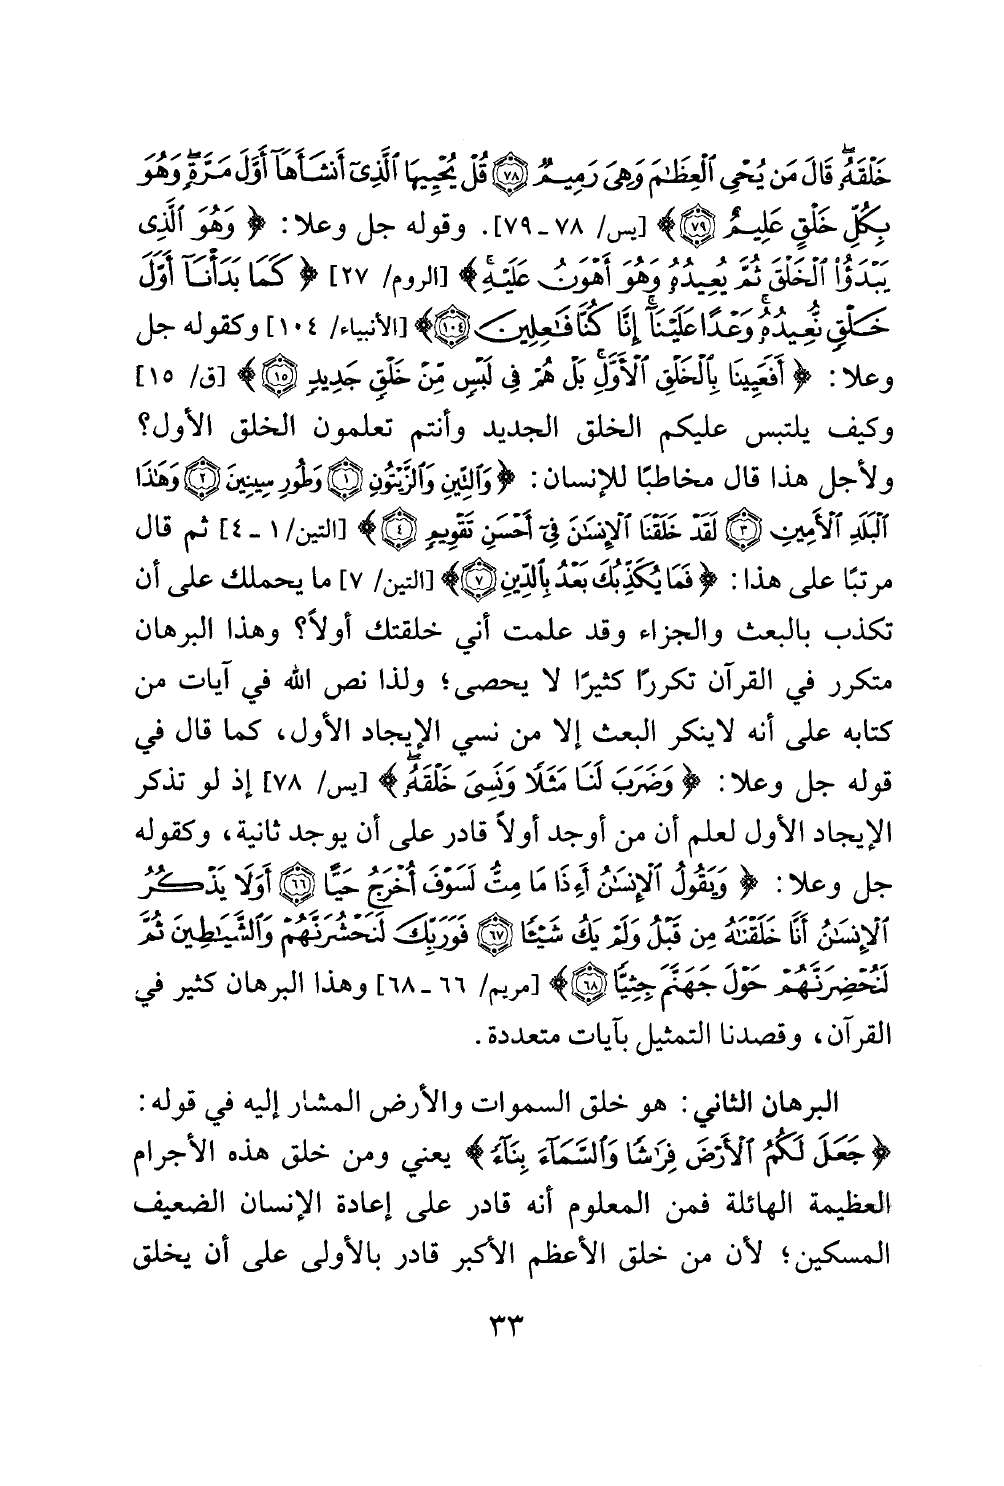 خَلْقَهُۥۖ قَالَ مَن يُحْىِ ٱلْعِظَٰمَ وَهِىَ رَمِيمٌ ٧٨ قُلْ يُحْيِيهَا ٱلَّذِىٓ أَنشَأَهَآ أَوَّلَ مَرَّةٍۖ وَهُوَ
بِكُلِّ خَلْقٍ عَلِيمٌ ٧٩﴾ [يس/ ٧٨ ـ ٧٩]. وقوله جل وعلا: ﴿وَهُوَ ٱلَّذِى
يَبْدَؤُا۟ ٱلْخَلْقَ ثُمَّ يُعِيدُهُۥ وَهُوَ أَهْوَنُ عَلَيْهِۚ﴾ [الروم/ ٢٧] ﴿كَمَا بَدَأْنَآ أَوَّلَ
خَلْقٍ نُّعِيدُهُۥۚ وَعْدًا عَلَيْنَآۚ إِنَّا كُنَّا فَٰعِلِينَ ١٠٤﴾ [الأنبياء/ ١٠٤] وكقوله جل
وعلا: ﴿أَفَعَيِينَا بِٱلْخَلْقِ ٱلْأَوَّلِۚ بَلْ هُمْ فِى لَبْسٍ مِّنْ خَلْقٍ جَدِيدٍ ١٥﴾ [ق/ ١٥]
وكيف يلتبس عليكم الخلق الجديد وأنتم تعلمون الخلق الأول؟
ولأجل هذا قال مخاطبًا للإنسان: ﴿وَٱلتِّينِ وَٱلزَّيْتُونِ ١ وَطُورِ سِينِينَ ٢ وَهَٰذَا
ٱلْبَلَدِ ٱلْأَمِينِ ٣ لَقَدْ خَلَقْنَا ٱلْإِنسَٰنَ فِىٓ أَحْسَنِ تَقْوِيمٍ ٤﴾ [التين/ ١ ـ ٤] ثم قال
مرتبًا على هذا: ﴿فَمَا يُكَذِّبُكَ بَعْدُ بِٱلدِّينِ ٧﴾ [التين/ ٧] ما يحملك على أن
تكذب بالبعث والجزاء وقد علمت أني خلقتك أولاً؟ وهذا البرهان
متكرر في القرآن تكررًا كثيرًا لا يحصى؛ ولذا نص الله في آيات من
كتابه على أنه لاينكر البعث إلا من نسي الإيجاد الأول، كما قال في
قوله جل وعلا: ﴿وَضَرَبَ لَنَا مَثَلًا وَنَسِىَ خَلْقَهُۥۖ﴾ [يس/ ٧٨] إذ لو تذكر
الإيجاد الأول لعلم أن من أوجد أولاً قادر على أن يوجد ثانية، وكقوله
جل وعلا: ﴿وَيَقُولُ ٱلْإِنسَٰنُ أَءِذَا مَا مِتُّ لَسَوْفَ أُخْرَجُ حَيًّا ٦٦ أَوَلَا يَذْكُرُ
ٱلْإِنسَٰنُ أَنَّا خَلَقْنَٰهُ مِن قَبْلُ وَلَمْ يَكُ شَيْـًٔا ٦٧ فَوَرَبِّكَ لَنَحْشُرَنَّهُمْ وَٱلشَّيَٰطِينَ ثُمَّ
لَنُحْضِرَنَّهُمْ حَوْلَ جَهَنَّمَ جِثِيًّا ٦٨﴾ [مريم/ ٦٦ ـ ٦٨] وهذا البرهان كثير في
القرآن، وقصدنا التمثيل بآيات متعددة.
البرهان الثاني: هو خلق السموات والأرض المشار إليه في قوله:
﴿جَعَلَ لَكُمُ ٱلْأَرْضَ فِرَٰشًا وَٱلسَّمَآءَ بِنَآءً﴾ يعني ومن خلق هذه الأجرام
العظيمة الهائلة فمن المعلوم أنه قادر على إعادة الإنسان الضعيف
المسكين؛ لأن من خلق الأعظم الأكبر قادر بالأولى على أن يخلق
٣٣